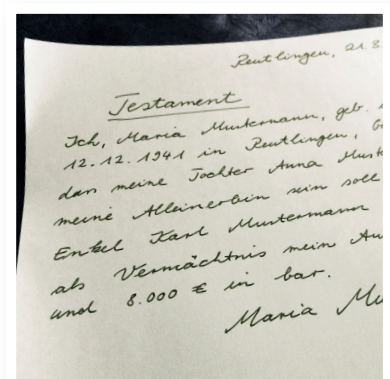 Reutlingen, 21.8.
Testament
Ich, Maria Mustermann, geb.
12.12.1941 in Reutlingen,
dass meine Tochter Anna
meine Alleinerbin sein soll
Enkel Karl Mustermann
als Vermächtnis mein
und 8.000 € in bar.
Maria